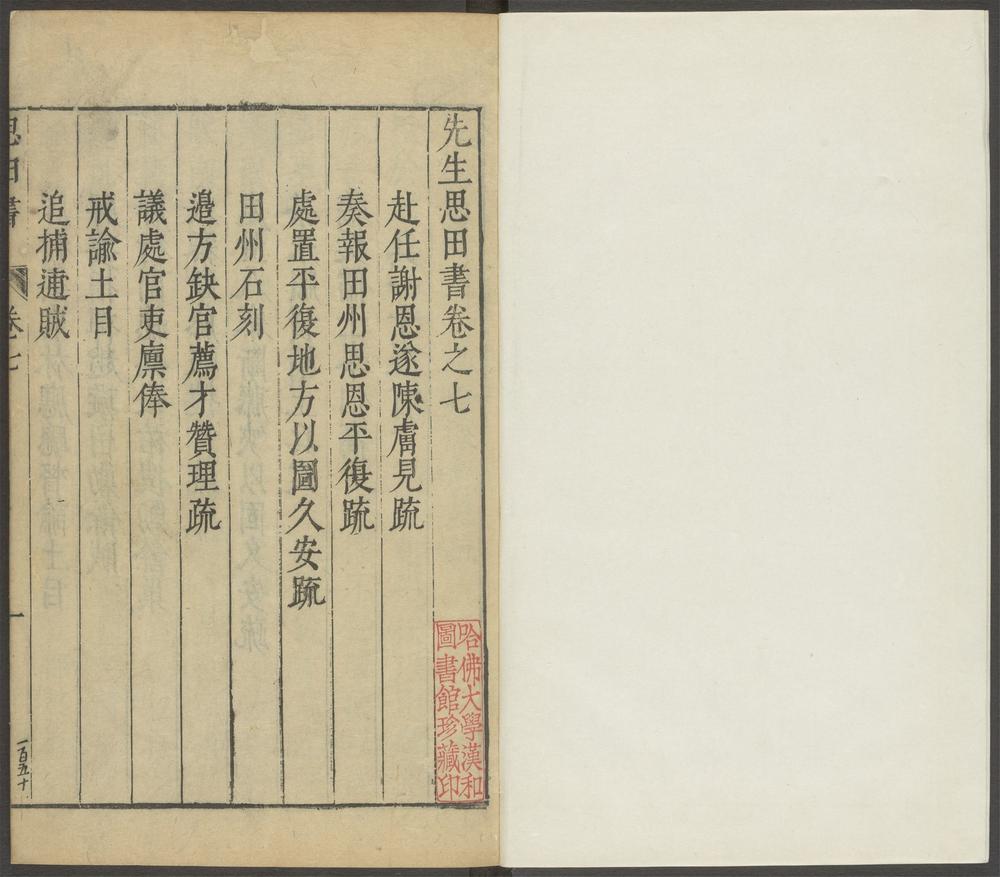 先生思田書卷之七
赴任謝恩遂陳膚見疏
奏報田州思恩平復疏
處置平復地方以圖久安疏
田州石刻
邉方缺官薦才贊理疏
議處官吏廪俸
戒諭土目
追捕逋賊
思田書 卷七 一
一百五十
哈佛大學漢和
圖書館珍藏印